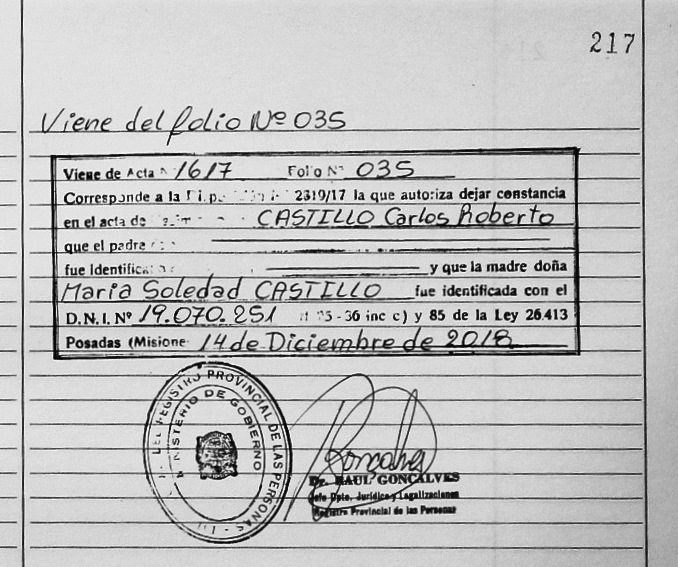 217
Viene del folio Nº 035
Viene de Acta N 1617 Folio Nº 035
Corresponde a la 2319/17 la que autoriza dejar constancia
en el acta de CASTILLO Carlos Roberto
que el padre
fue Identific y que la madre doña
Maria Soledad CASTILLO fue identificada con el
D.N.I. Nº 19.070.251 35-36 inc c) y 85 de la Ley 26.413
Posadas (Misione 14 de Diciembre de 2018
REGISTRO PROVINCIAL DE LAS PERSONAS
MINISTERIO DE GOBIERNO
Goncalves
Dr. RAUL GONCALVES
Jefe Dpto. Jurídico y Legalizaciones
Registro Provincial de las Personas